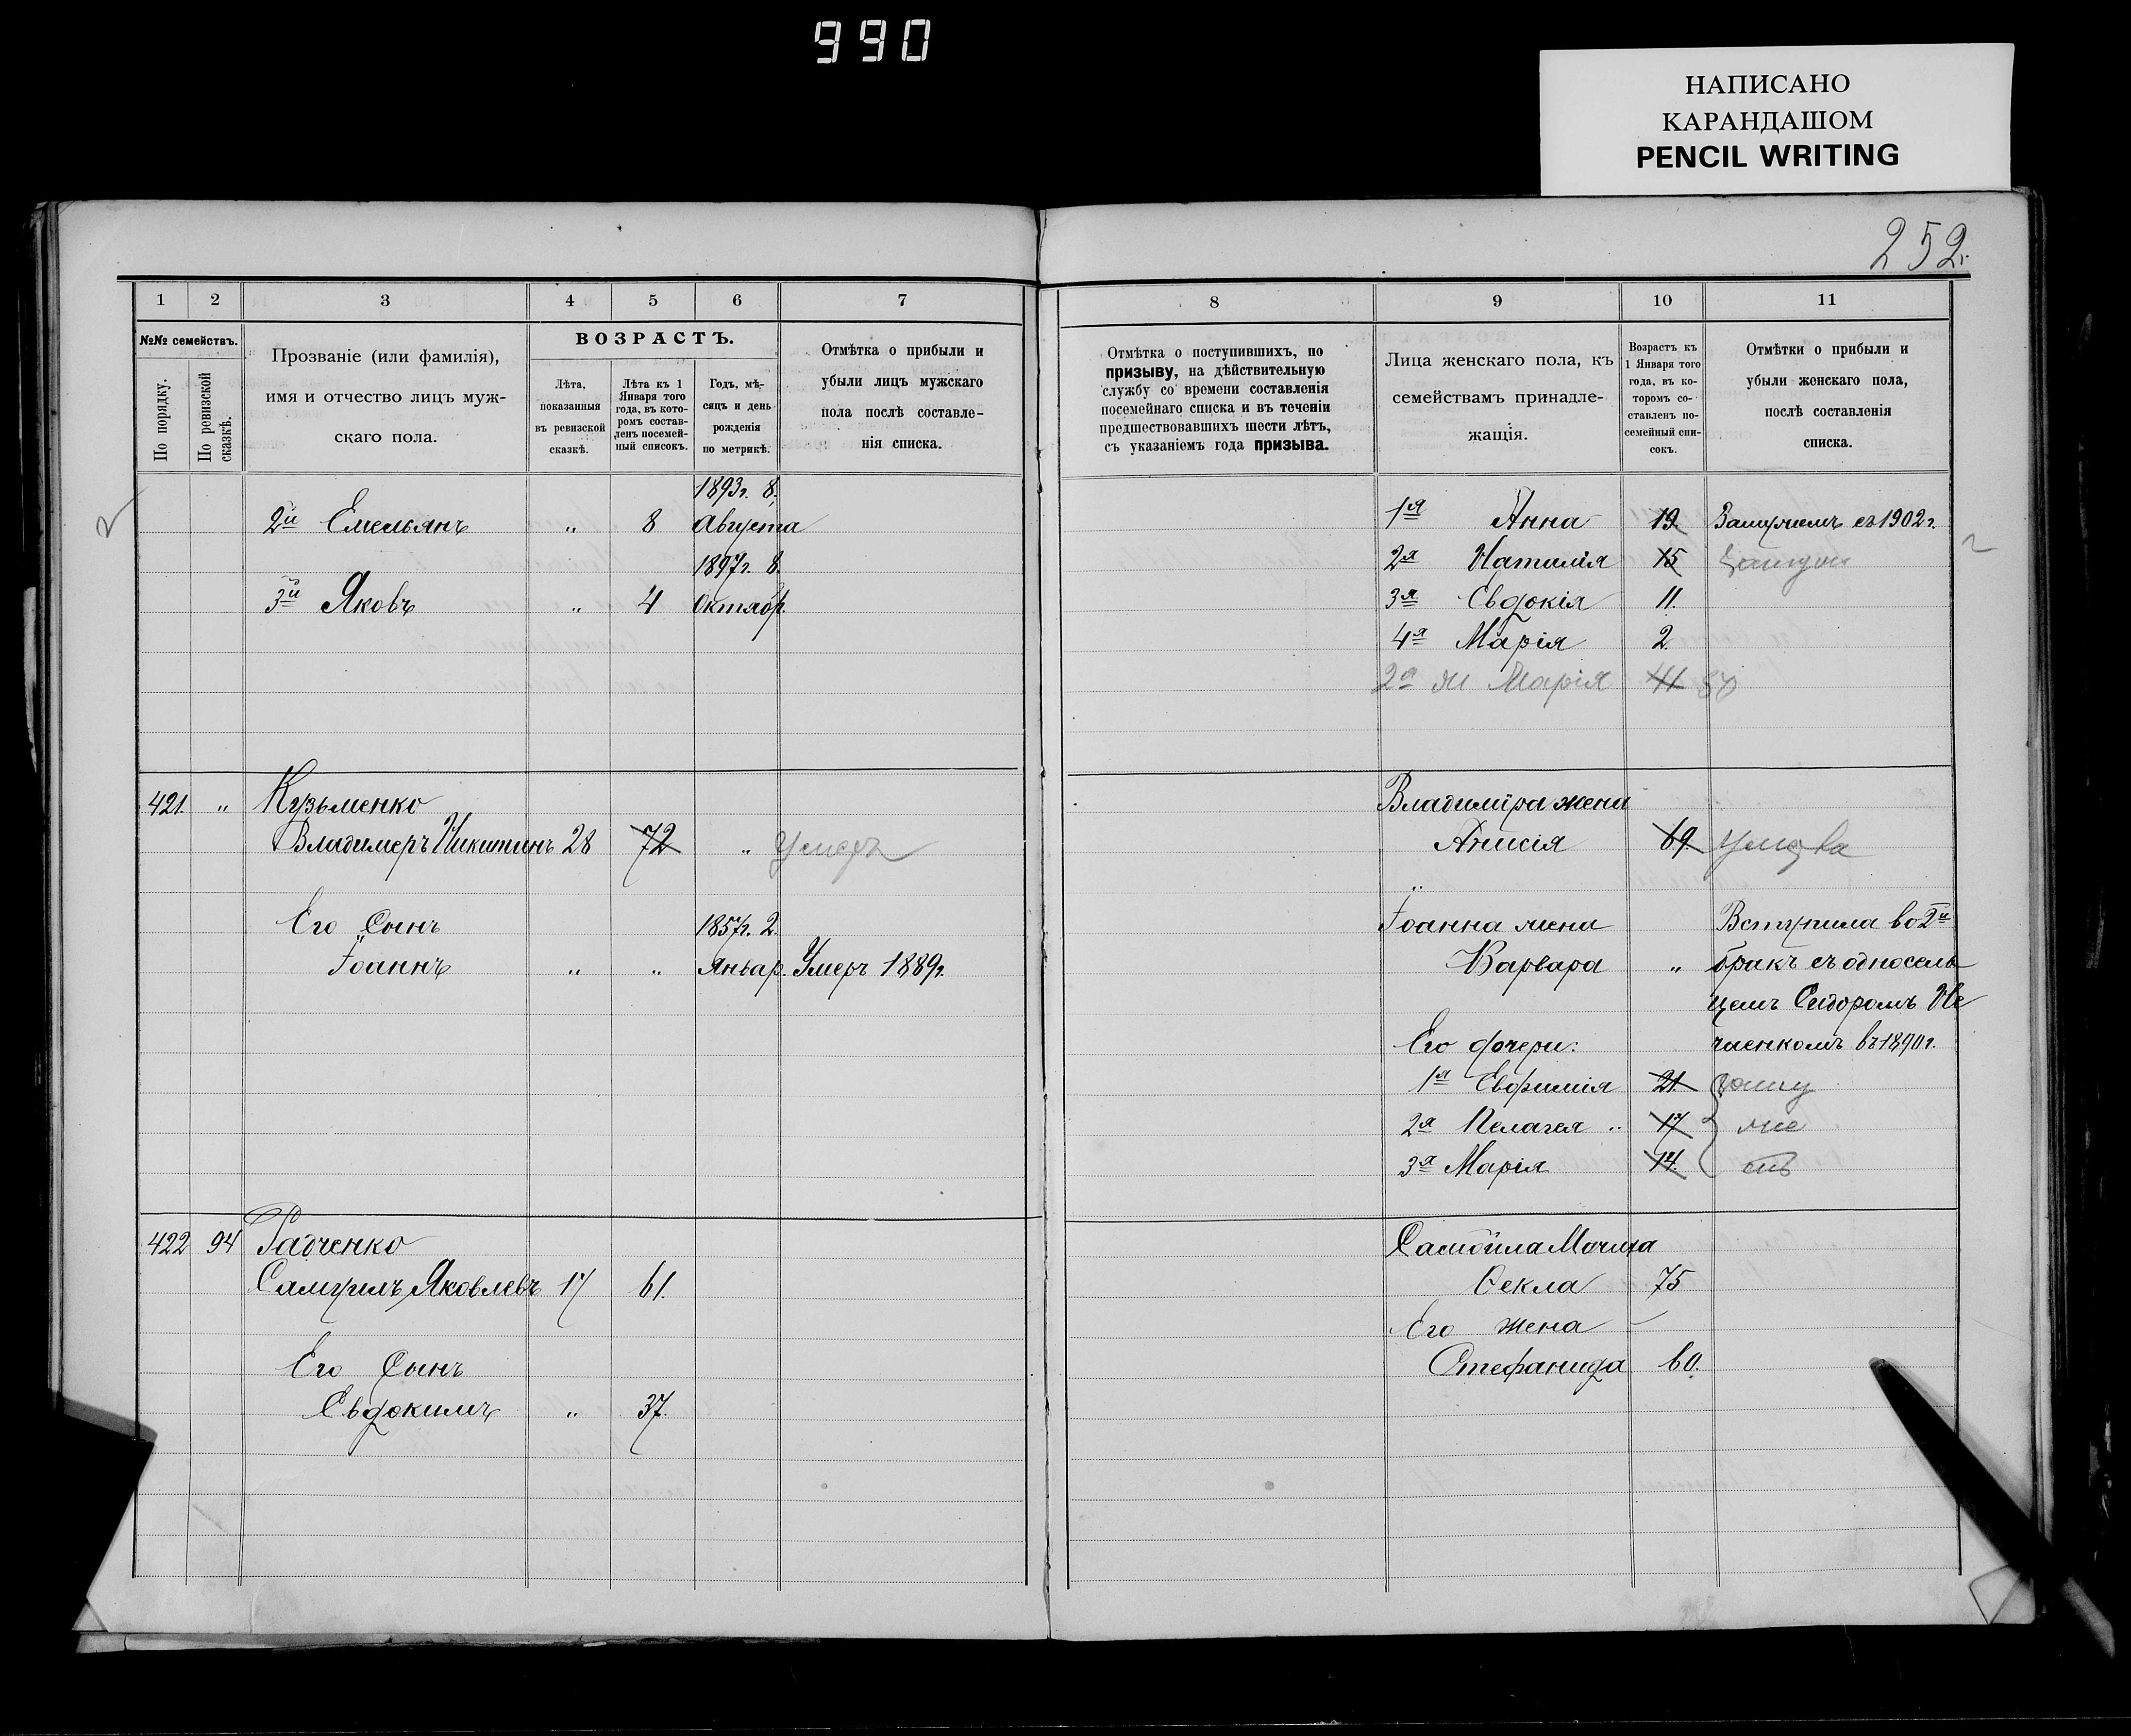 990
НАПИСАНО
КАРАНДАШОМ
PENCIL WRITING
252.
1 2 3 4 5 6 7
№№ семействъ.
По порядку.
По ревизской сказкѣ.
Прозваніе (или фамилія),
имя и отчество лицъ муж-
скаго пола.
ВОЗРАСТЪ.
Лѣта,
показанныя
въ ревизской
сказкѣ.
Лѣта къ 1
Января того
года, въ кото-
ромъ состав-
ленъ посемей-
ный списокъ.
Годъ, мѣ-
сяцъ и день
рожденія
по метрикѣ.
Отмѣтка о прибыли и
убыли лицъ мужскаго
пола послѣ составле-
нія списка.
1893г. 8.
2й Емельянъ " 8 Августа
1897г. 8.
3й Яковъ " 4 Октябр.
421. " Кузьменко
Владимеръ Никитинъ 28 72 " Умеръ
Его Сынъ 1857г. 2.
Іоаннъ " " Январ. Умеръ 1889г.
422 94 Радченко
Самуилъ Яковлевъ 17 61.
Его Сынъ
Евдокимъ " 37.
8 9 10 11
Отмѣтка о поступившихъ, по
призыву, на дѣйствительную
службу со времени составленія
посемейнаго списка и въ теченіи
предшествовавшихъ шести лѣтъ,
съ указаніемъ года призыва.
Лица женскаго пола, къ
семействамъ принадле-
жащія.
Возрастъ къ
1 Января того
года, въ ко-
торомъ со-
ставленъ по-
семейный спи-
сокъ.
Отмѣтки о прибыли и
убыли женскаго пола,
послѣ составленія
списка.
1я Анна 19. Замужемъ съ 1902г.
2я Наталія 15
3я Евдокія 11.
4я Марія 2.
2а ж Марія 41
Владиміра жена
Анисія 69. Умерла
"
Іоанна жена Вступила во 2й
Варвара " бракъ съ односель
цемъ Сидоромъ Не
Его дочери: чаенкомъ въ 1890г.
1я Евфимія 21. Заму
2я Пелагея " 17 } же
3я Марія 14. } ств
Самойла Мачиха
Ѳекла 75
Его жена
Стефанида 60.